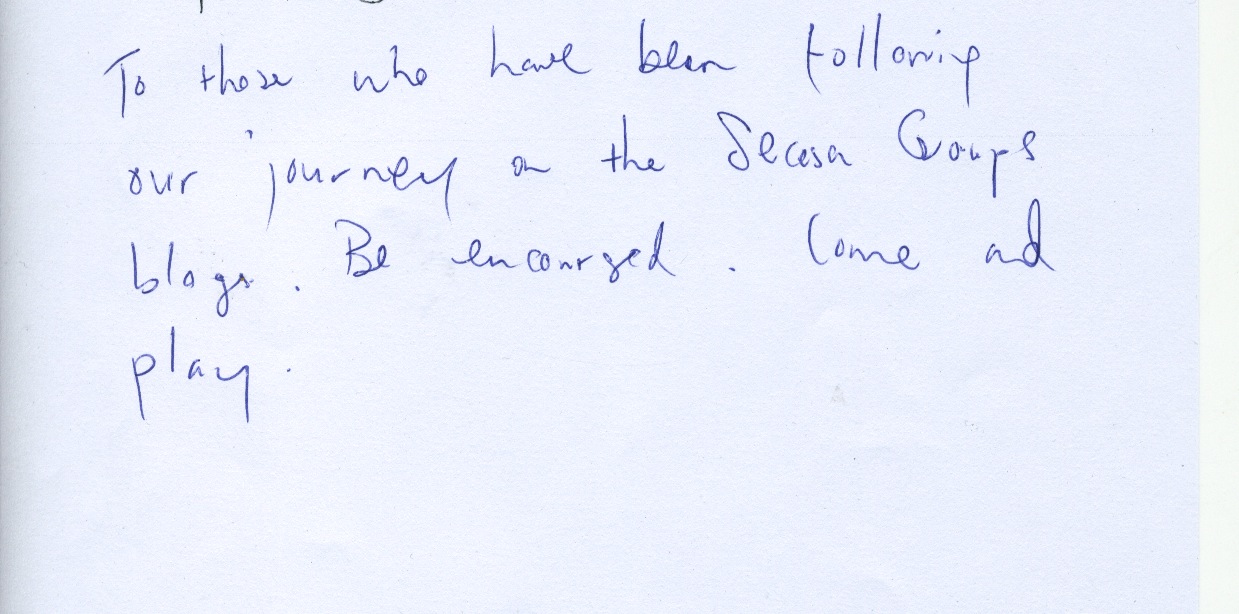 To those who have been following
our journey on the Secesa Groups
blogs. Be encourged. Come and
play.